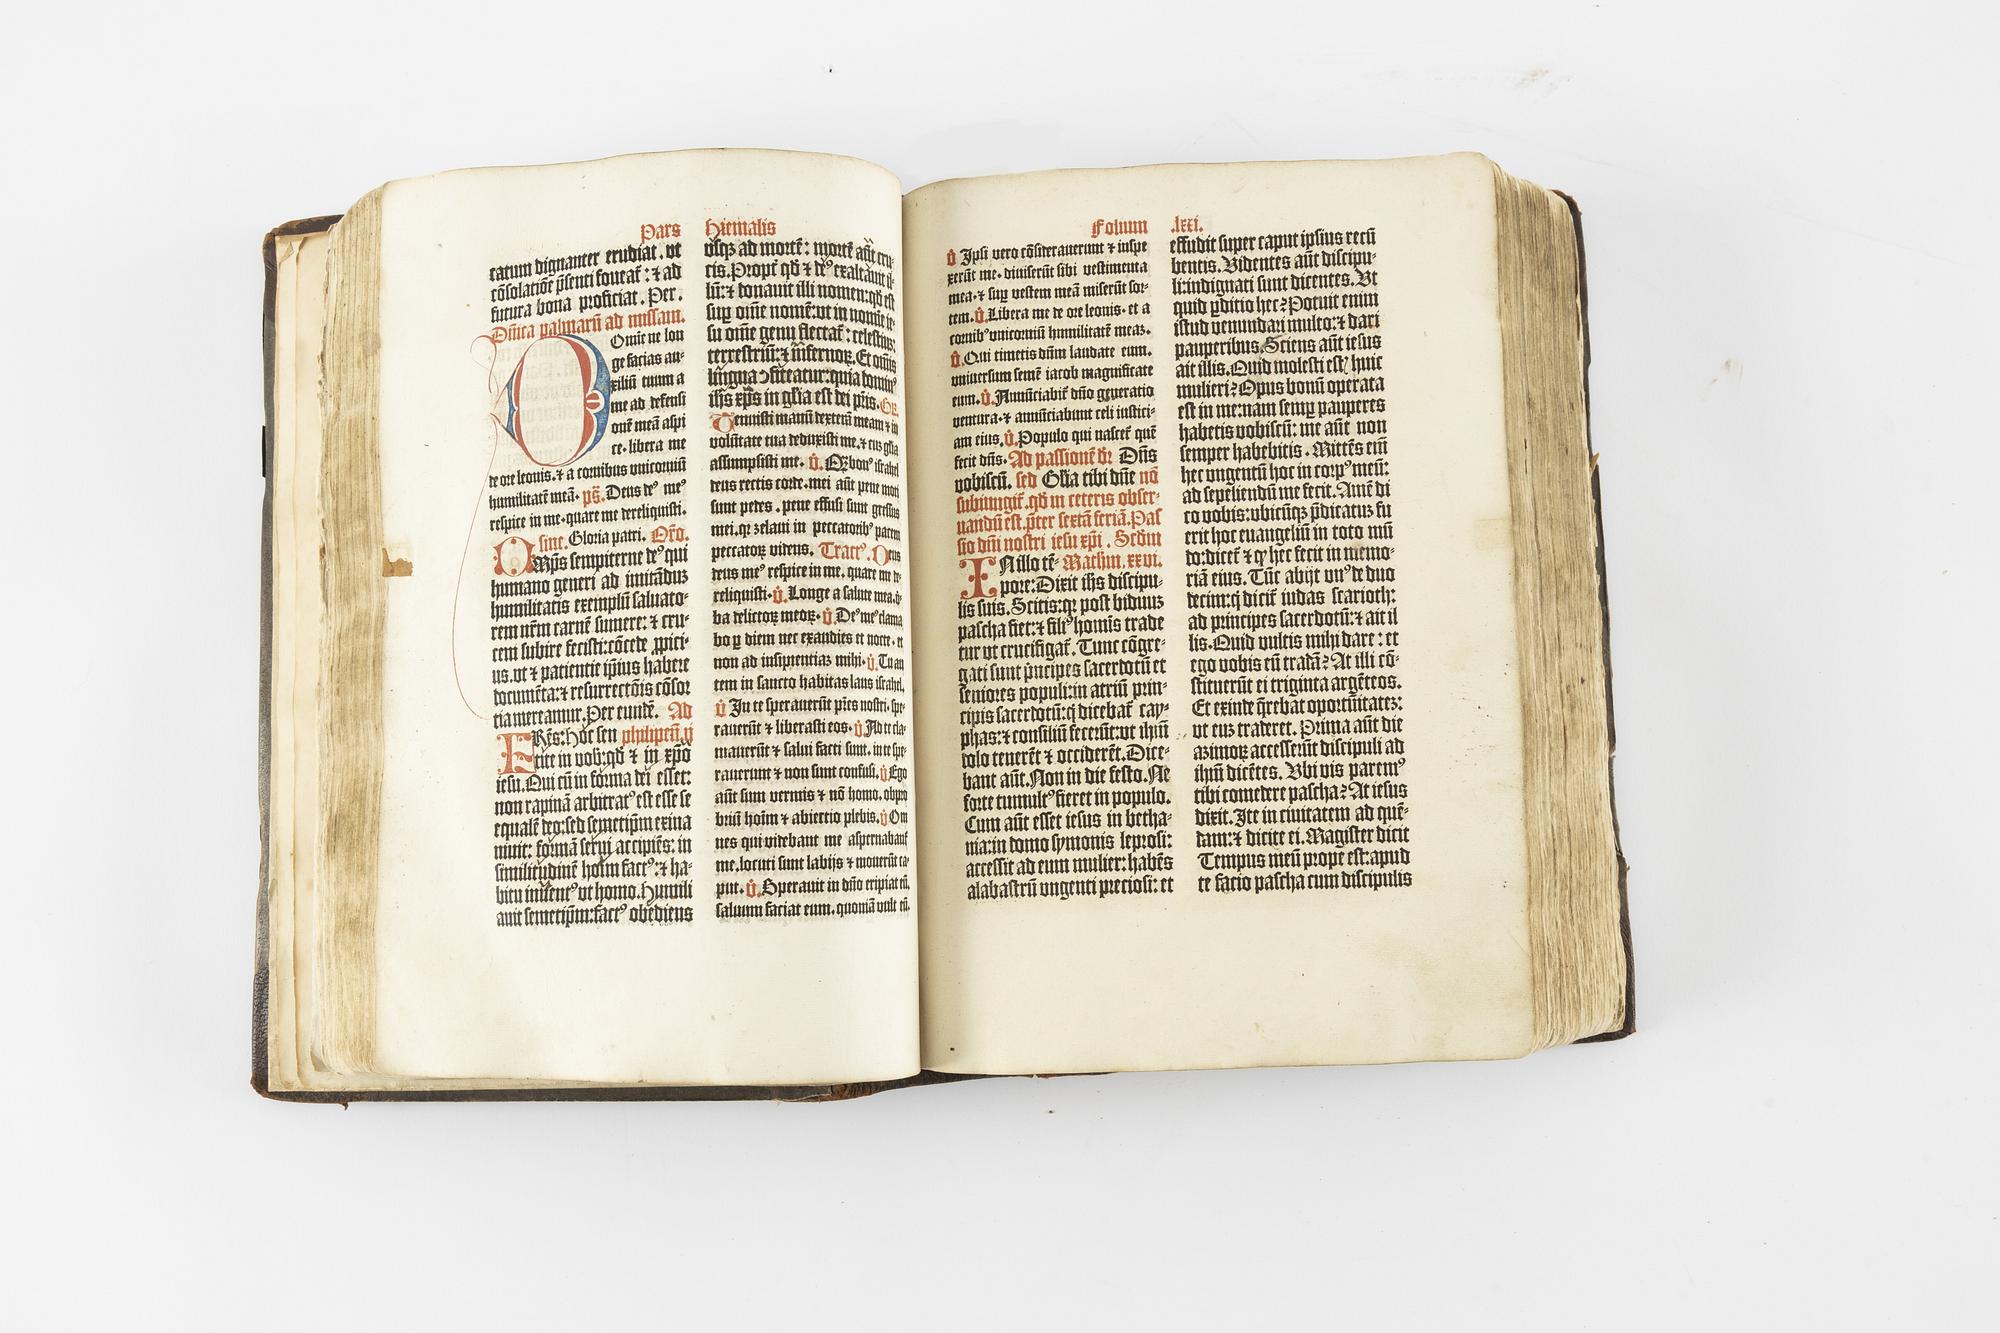 Pars Hiemalis
catum dignanter erudiat. vt
cōsolatiōe p̄senti foueat᷑: ⁊ ad
futura bona proficiat. Per.
Dn̄ica palmarū ad missam.
Omīe ne lon
ge facias au-
xiliū tuum a
me ad defensi
onē meā aspi
ce. libera me
de ore leonis. ⁊ a cornibus vnicorniū
humilitatē meā. ps̄. Deus deꝰ meꝰ
respice in me. quare me dereliquisti.
sine. Gloria patri. Orō.
Omp̄s sempiterne deꝰ qui
humano generi ad imitāduz
humilitatis exemplū saluato-
rem nr̄m carnē sumere: ⁊ cru-
cem subire fecisti: cōcede ꝓpici-
us. vt ⁊ patientie ip̄ius habere
documēta: ⁊ resurrectōis cōsor
tia mereamur. Per eundē. Ad
FRēs: hoc sen philipen̄. ij
tite in vob: qd̄ ⁊ in xp̄o
iesu. Qui cū in forma dei esset:
non rapinā arbitratꝰ est esse se
equalē deo: sed semetip̄m exina
niuit: formā serui accipiēs: in
similitudinē hoīm factꝰ: ⁊ ha-
bitu inūentꝰ vt homo. Humili
auit semetip̄m: factꝰ obediens
vsqꝫ ad mortē: mortē aūt cru-
cis. Propt᷑ qd̄ ⁊ deꝰ exaltauit il-
lū: ⁊ donauit illi nomen: qd̄ est
sup om̄e nomē: vt in nomīe ie-
su om̄e genu flectat᷑: celestiuꝫ
terrestriū: ⁊ īfernoꝝ. Et om̄is
lingua ꝯfiteatur: quia dominꝰ
ih̄s xp̄s in gl̄ia est dei pr̄is. GR.
Tenuisti manū dexterā meam ⁊ in
volūtate tua deduxisti me. ⁊ cū gl̄ia
assumpsisti me. v̊. Qȝ bonꝰ israhel
deus rectis corde. mei aūt pene moti
sunt pedes. pene effusi sunt gressus
mei. qꝛ zelaui in peccatoribꝰ pacem
peccatoꝝ videns. Tractꝰ. Deus
deus meꝰ respice in me. quare me de
reliquisti. v̊. Longe a salute mea. v̄-
ba delictoꝝ meoꝝ. v̊. Deꝰ meꝰ clama
bo ꝑ diem nec exaudies et nocte. et
non ad insipientiaꝫ mihi. v̊. Tu au
tem in sancto habitas laus israhel.
v̊ In te sperauerūt pr̄es nostri. spe-
rauerūt ⁊ liberasti eos. v̊ Ad te cla-
mauerūt ⁊ salui facti sunt. in te spe-
rauerunt ⁊ non sunt confusi. v̊ Ego
aūt sum vermis ⁊ nō homo. obpro
briū hoīm ⁊ abiectio plebis. v̊ Om
nes qui videbant me aspernabant᷑
me. locuti sunt labijs ⁊ mouerūt ca-
put. v̊. Sperauit in dn̄o eripiat eū.
saluum faciat eum. quoniā vult eū.
Folium .lxxi.
v̊ Ipsi vero cōsiderauerunt ⁊ inspe
xerūt me. diuiserūt sibi vestimenta
mea. ⁊ suꝑ vestem meā miserūt sor-
tem. v̊. Libera me de ore leonis. et a
cornibꝰ vnicorniū humilitatē meaꝫ.
v̊. Qui timetis dn̄m laudate eum.
vniuersum semē iacob magnificate
eum. v̊. Annūciabit᷑ dn̄o generatio
ventura. ⁊ annūciabunt celi iustici-
am eius. v̊. Populo qui nascet᷑ quē
fecit dn̄s. Ad passionē dr̄ Dn̄s
vobiscū. sed Gl̄ia tibi dn̄e nō
subiungit᷑. qd̄ in ceteris obser-
uandū est. p̄ter sextā feriā. Pas
sio dn̄i nostri iesu xp̄i. Scd̄m
IN illo tē- Mathm̄. xxvi.
pore: Dixit ih̄s discipu-
lis suis. Scitis: qꝛ post biduuꝫ
pascha fiet: ⁊ filiꝰ homīs trade
tur vt crucifigat᷑. Tunc cōgre-
gati sunt p̄ncipes sacerdotū et
seniores populi: in atriū prin-
cipis sacerdotū: q̄ dicebat᷑ cay-
phas: ⁊ consiliū fecerūt: vt ih̄m
dolo tenerēt ⁊ occiderēt. Dice-
bant aūt. Non in die festo. Ne
forte tumultꝰ fieret in populo.
Cum aūt esset iesus in betha-
nia: in domo symonis leprosi:
accessit ad eum mulier: habēs
alabastrū vngenti preciosi: et
effudit super caput ipsius recū
bentis. Videntes aūt discipu-
li: indignati sunt dicentes. Vt
quid ꝑditio hec? Potuit enim
istud venundari multo: ⁊ dari
pauperibus. Sciens aūt iesus
ait illis. Quid molesti est᷑ huic
mulieri? Opus bonū operata
est in me: nam semꝑ pauperes
habetis vobiscū: me aūt non
semper habebitis. Mittēs em̄
hec vngentū hoc in corpꝰ meū:
ad sepeliendū me fecit. Amē di
co vobis: vbicūqꝫ p̄dicatuꝫ fu
erit hoc euangeliū in toto mū
do: dicet᷑ ⁊ qꝙ hec fecit in memo-
riā eius. Tūc abijt vnꝰ de duo
decim: q̄ dicit᷑ iudas scarioth:
ad principes sacerdotū: ⁊ ait il
lis. Quid vultis mihi dare: et
ego vobis eū tradā? At illi cō-
stituerūt ei triginta argēteos.
Et exinde q̄rebat oportūitateꝫ:
vt euꝫ traderet. Prima aūt die
azimoꝝ accesserūt discipuli ad
ih̄m dicētes. Vbi vis paremꝰ
tibi comedere pascha? At iesus
dixit. Ite in ciuitatem ad quē-
dam: ⁊ dicite ei. Magister dicit
Tempus meū prope est: apud
te facio pascha cum discipulis